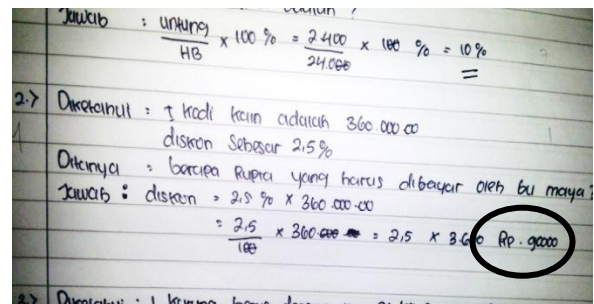 Jawab : untung / HB x 100 % = 2.400 / 24.000 x 100 % = 10 %
2.> Diketahui : 1 kodi kain adalah 360.000.00
diskon sebesar 2,5 %
Ditanya : berapa Rupia yang harus dibayar oleh bu maya?
Jawab : diskon = 2,5 % x 360.000.00
= 2,5 / 100 x 360.000 = 2,5 x 3.600 Rp. 90000
3.> Diketahui : 1